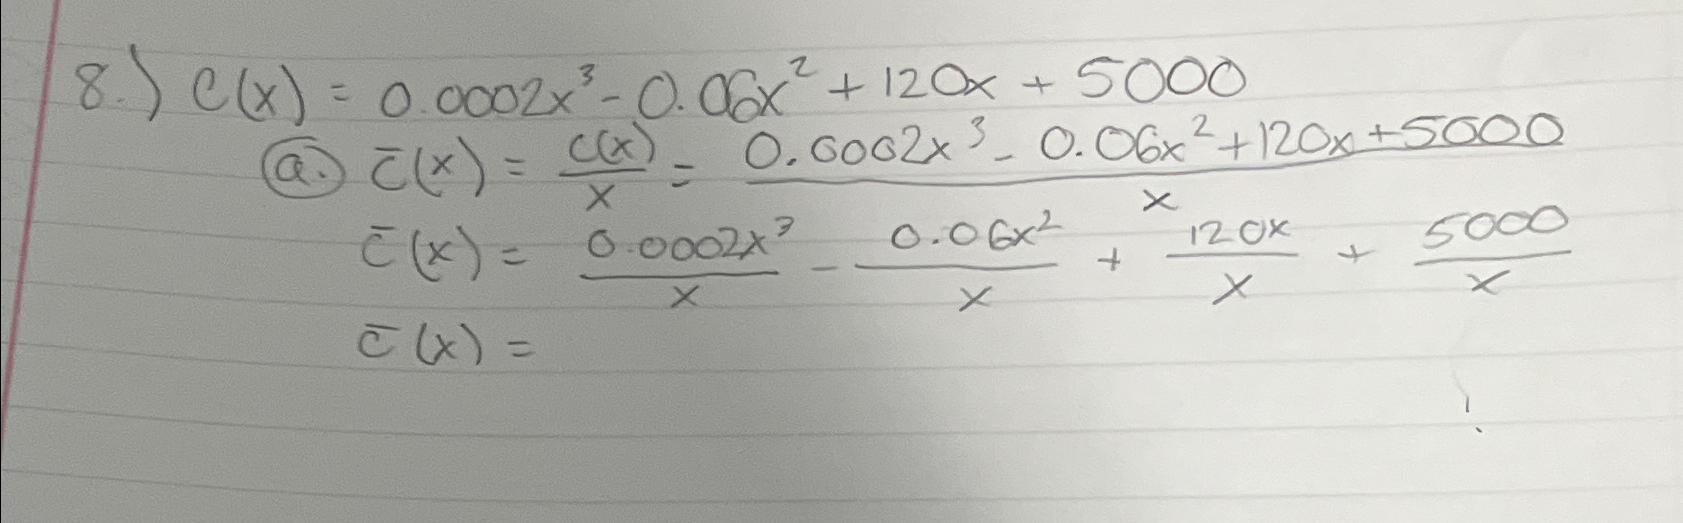 8.) C(x) = 0.0002x³ - 0.06x² + 120x + 5000
(a.) c̄(x) = C(x)/x = (0.0002x³ - 0.06x² + 120x + 5000)/x
c̄(x) = 0.0002x³/x - 0.06x²/x + 120x/x + 5000/x
c̄(x) =